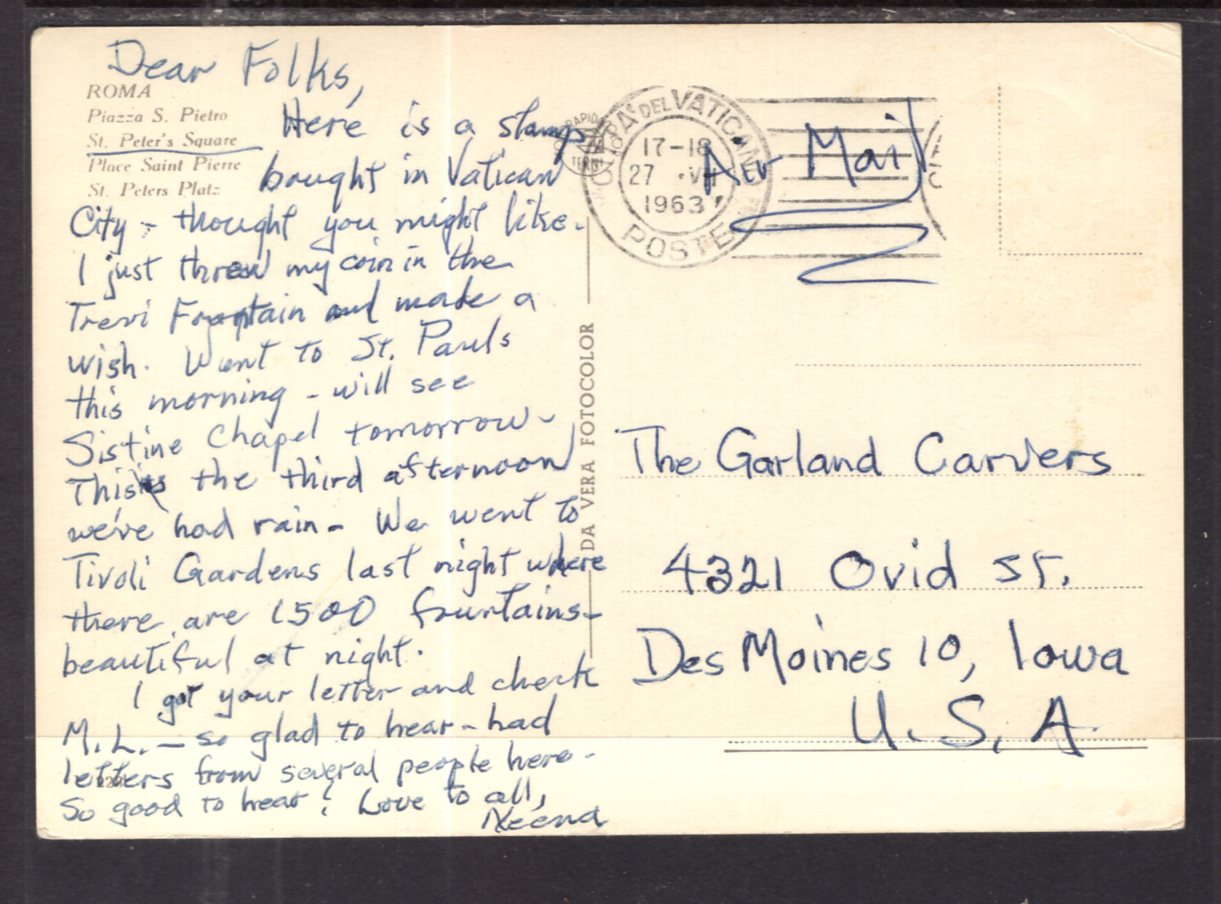 Dear Folks,
ROMA
Piazza S. Pietro
St. Peter's Square
Place Saint Pierre
St. Peters Platz
Here is a stamp
bought in Vatican
City - thought you might like.
I just threw my coin in the
Trevi Fountain and made a
wish. Went to St. Pauls
this morning - will see
Sistine Chapel tomorrow -
This is the third afternoon
we've had rain - We went to
Tivoli Gardens last night where
there are 1500 fountains -
beautiful at night.
I got your letter and check
M.L. - so glad to hear - had
letters from several people here -
So good to hear! Love to all,
Neena
DEL VATICANO
17-18
27 ·VII
1963
POSTE
Air Mail
DA VERA FOTOCOLOR
The Garland Carvers
4321 Ovid St.
Des Moines 10, Iowa
U.S.A.